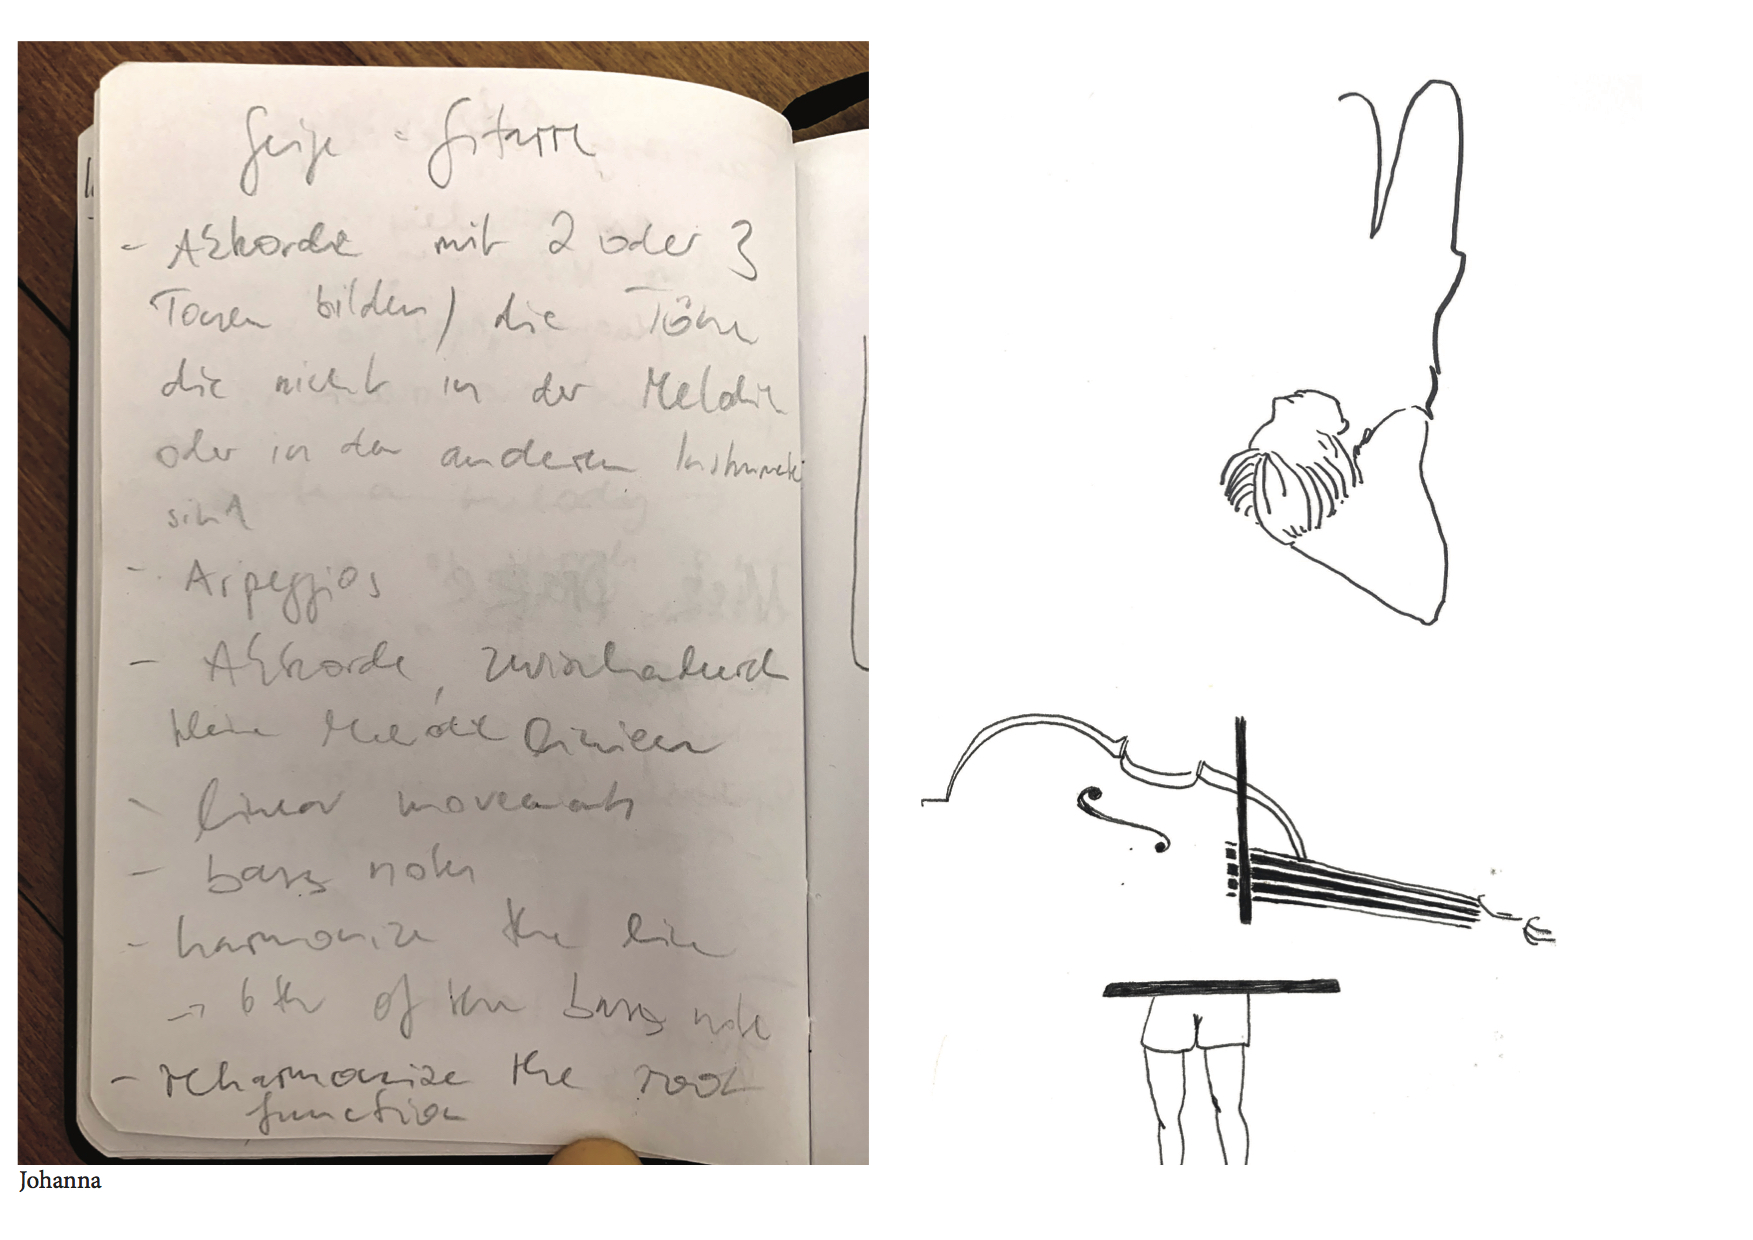 Geige - Gitarre
- Akkorde mit 2 oder 3
Tönen bilden / die Töne
die nicht in der Melodie
oder in den anderen Instrumenten
sind
- Arpeggios
- Akkorde, zwischendurch
kleine Melodie Linien
- linear movements
- bass notes
- harmonize the line
→ 6th of the bass note
- reharmonize the root
function
Johanna